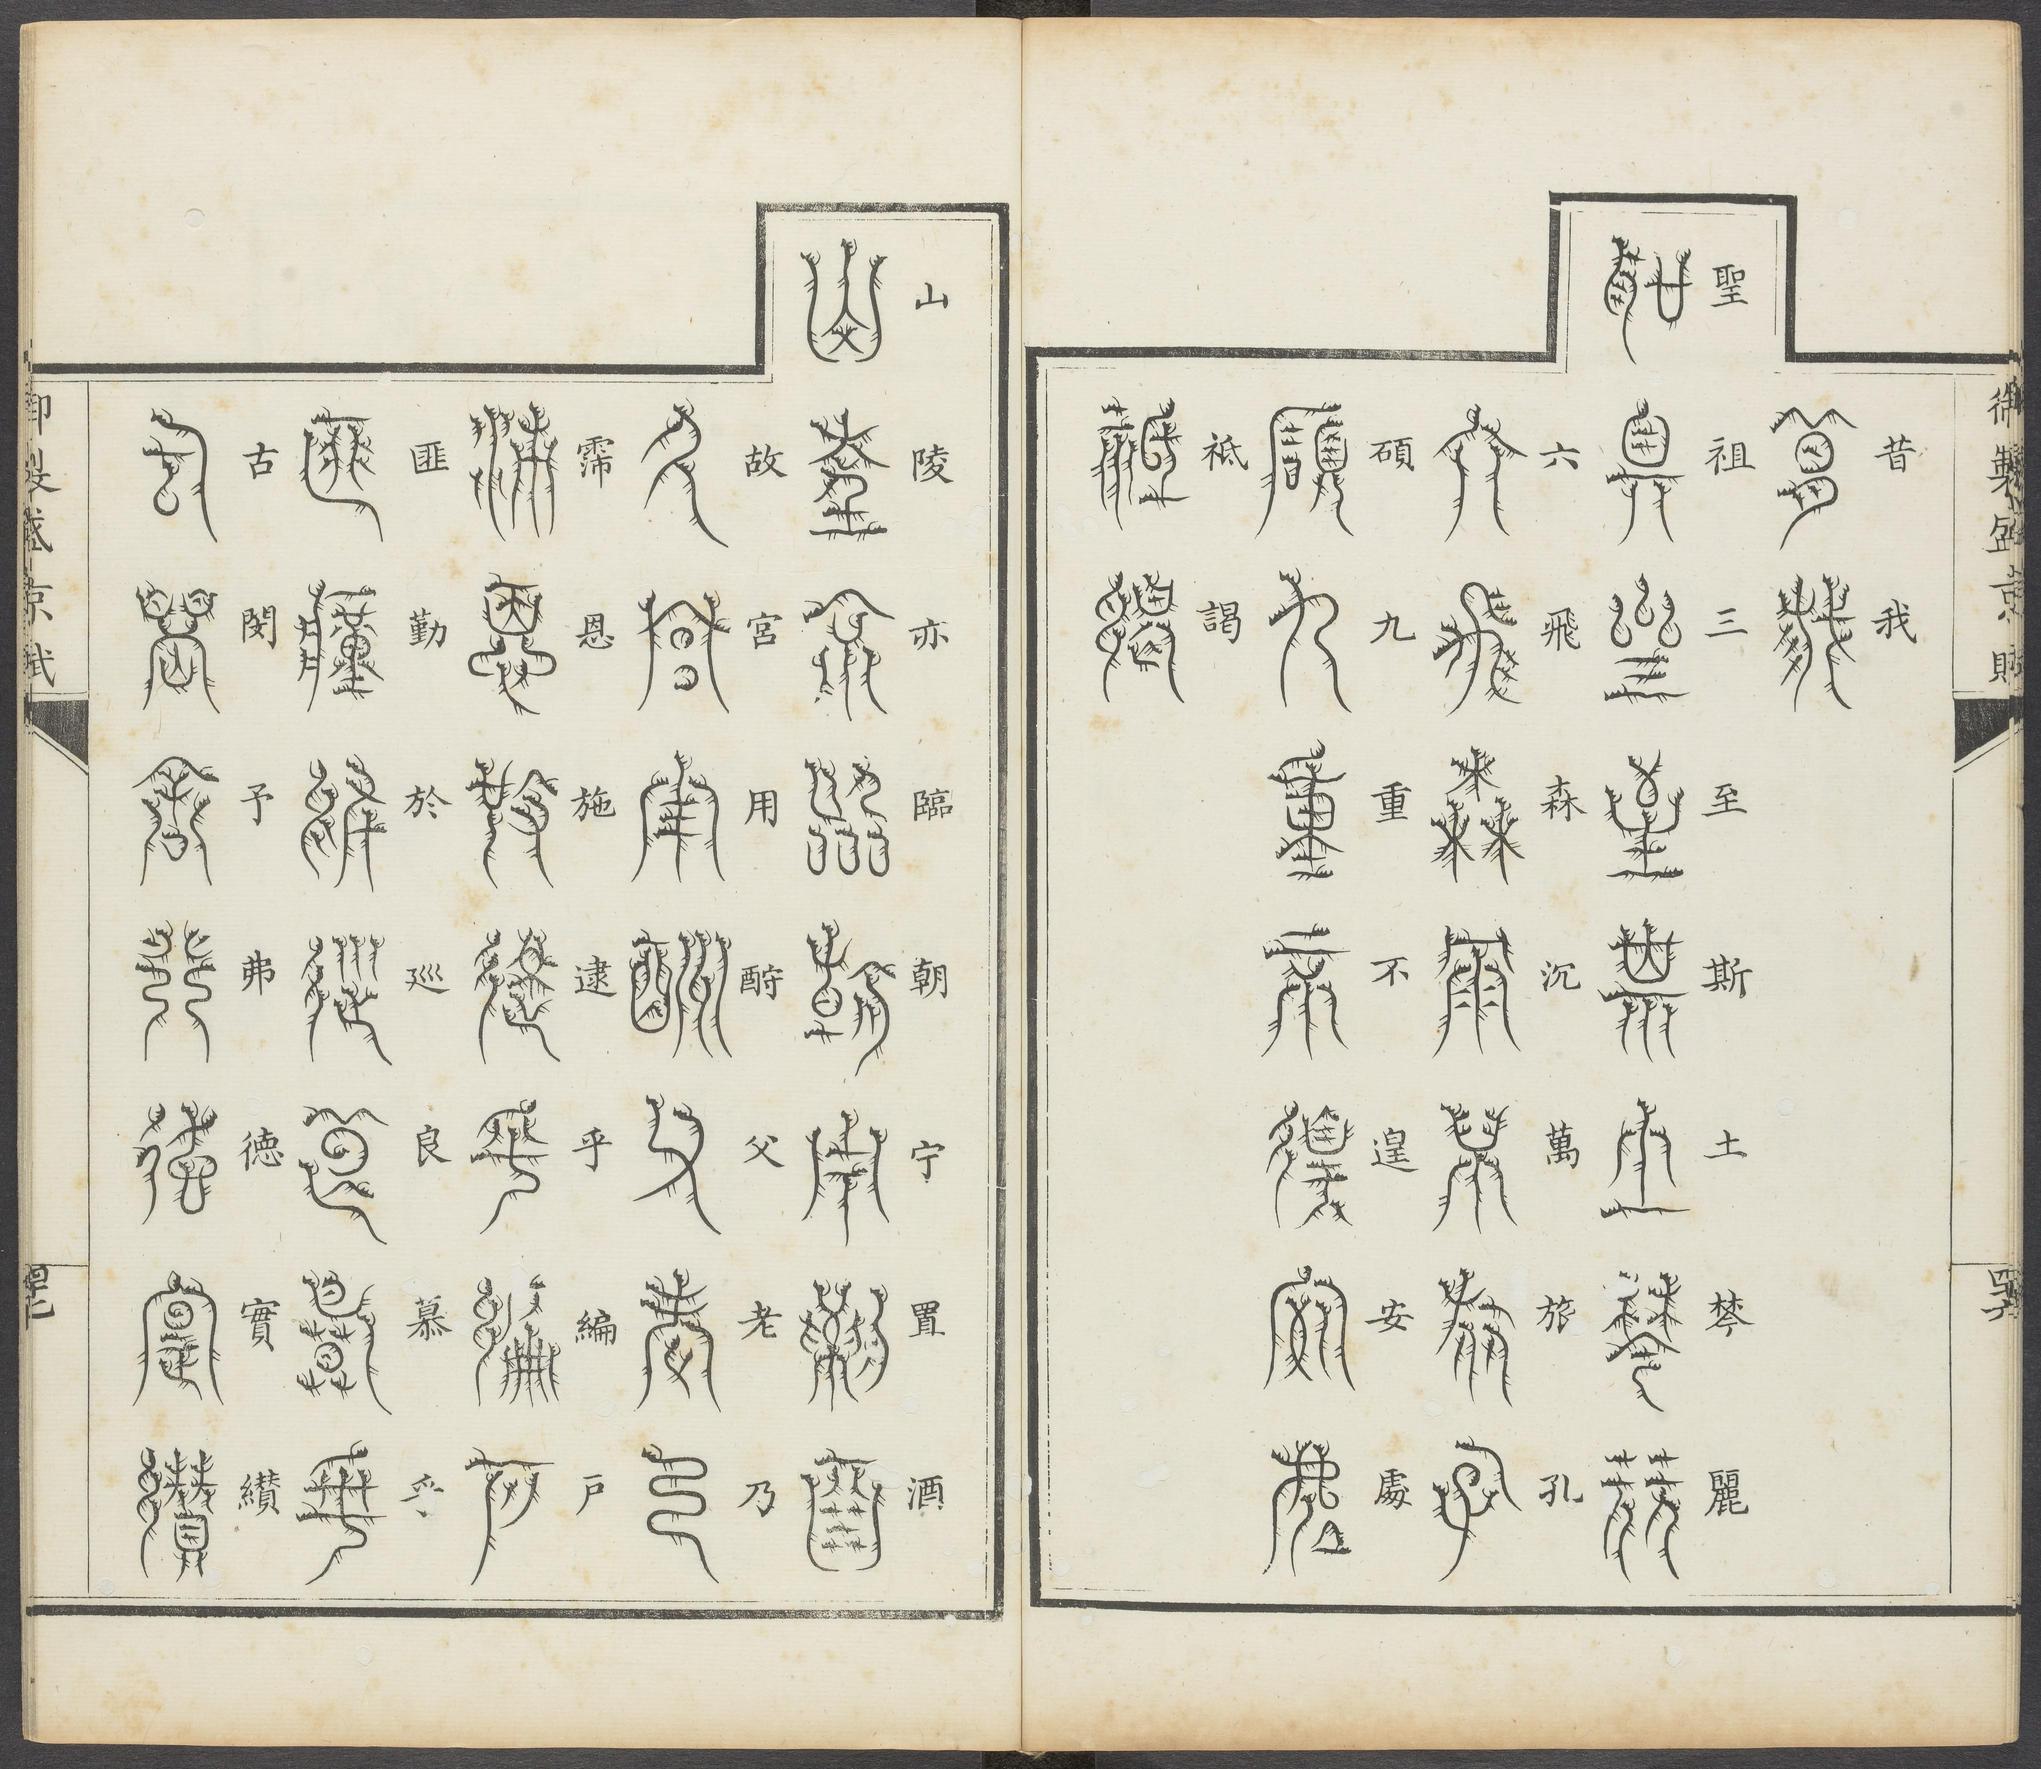 御製盛京賦
昔我
聖祖三至斯土棽麗
六飛森沉萬旅孔
碩九重不遑安處
祗謁
山陵亦臨朝宁置酒
故宮用酧父老乃
霈恩施逮乎編戸
匪勤於廵良慕乎
古閔予弗德實纉
御製盛京賦